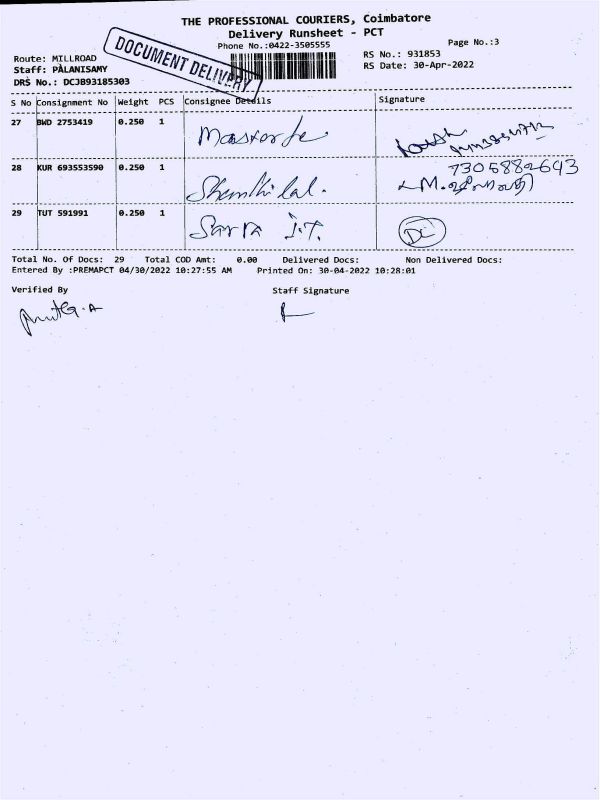 THE PROFESSIONAL COURIERS, Coimbatore
Delivery Runsheet - PCT
Phone No.:0422-3505555
Page No.:3
DOCUMENT DELIVERY
Route: MILLROAD
Staff: PALANISAMY
DRS No.: DCJB93185303
RS No.: 931853
RS Date: 30-Apr-2022
S No Consignment No Weight PCS Consignee Details Signature
27 BWD 2753419 0.250 1
7305882643
28 KUR 693553590 0.250 1 Shanthi lal.
29 TUT 591991 0.250 1 Sarva J.T. DC
Total No. Of Docs: 29 Total COD Amt: 0.00 Delivered Docs: Non Delivered Docs:
Entered By :PREMAPCT 04/30/2022 10:27:55 AM Printed On: 30-04-2022 10:28:01
Verified By Staff Signature